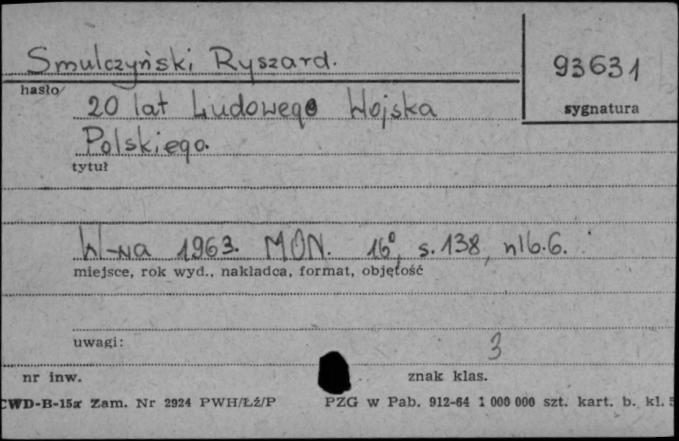 Smulczyński Ryszard.
93631
hasło
sygnatura
20 lat Ludowego Wojska
Polskiego.
tytuł
W-wa 1963. MON. 16°, s. 138, nlb. 6.
miejsce, rok wyd., nakładca, format, objętość
uwagi:
3
nr inw.
znak klas.
CWD-B-15a Zam. Nr 2924 PWH/Łź/P PZG w Pab. 912-64 1 000 000 szt. kart. b. kl. 5